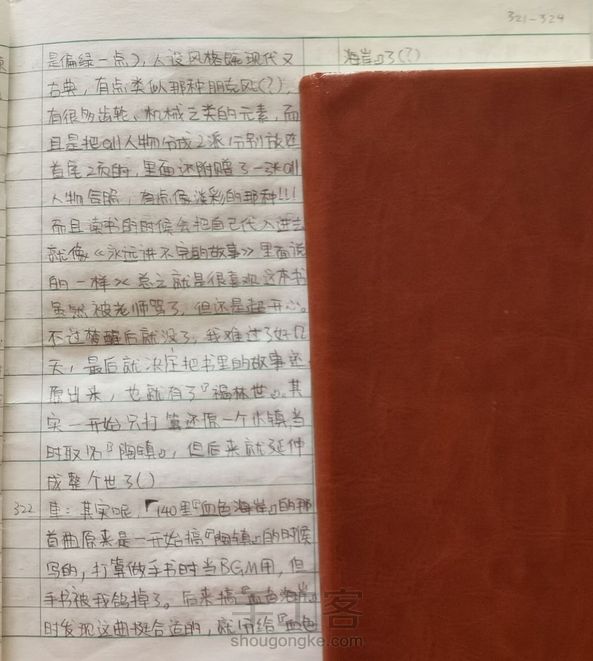 321-324
海岸』了(?)
是偏绿一点),人设风格既现代又
古典,有点类似那种朋克风(?),
有很多齿轮、机械之类的元素,而
且是把all人物分成2派分别放在
首尾2页的,里面还附赠了一张all
人物合照,有点像淡彩的那种!!!
而且读书的时候会把自己代入进去
就像《永远讲不完的故事》里面说
的一样>< 总之就是很喜欢这本书
虽然被老师骂了,但还是超开心。
不过梦醒后就没了,我难过了好几
天,最后就决定把书里的故事还
原出来,也就有了『福林世』。其
实一开始只打算还原一个小镇,当
时取名『陶镇』,但后来就延伸
成整个世了()
322 隼:其实呢,「140里『血色海岸』的那
首曲原来是一开始搞『陶镇』的时候
写的,打算做手书时当BGM用,但
手书被我鸽掉了。后来搞『血色海岸』
时发现这曲挺合适的,就用给『血色
手工客
shougongke.com